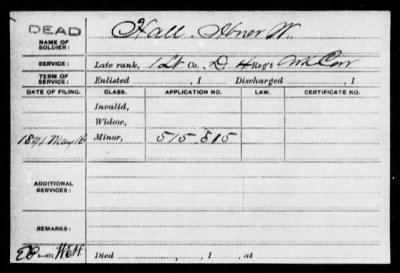 DEAD
NAME OF SOLDIER: Hall, Abner W.
SERVICE: Late rank, 1 Lt Co. D, 4 Reg't Cav
TERM OF SERVICE: Enlisted , 1 Discharged , 1
DATE OF FILING. CLASS. APPLICATION NO. LAW. CERTIFICATE NO.
Invalid,
Widow,
1891 May 16 Minor, 515.815
ADDITIONAL SERVICES:
REMARKS:
Died , 1 , at